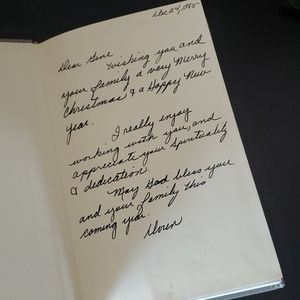 Dec 24, 1985
Dear Gene
Wishing you and
your family a very Merry
Christmas & a Happy New
year.
I really enjoy
working with you, and
appreciate your Spirituality
& dedication.
May God bless you
and your family this
coming year.